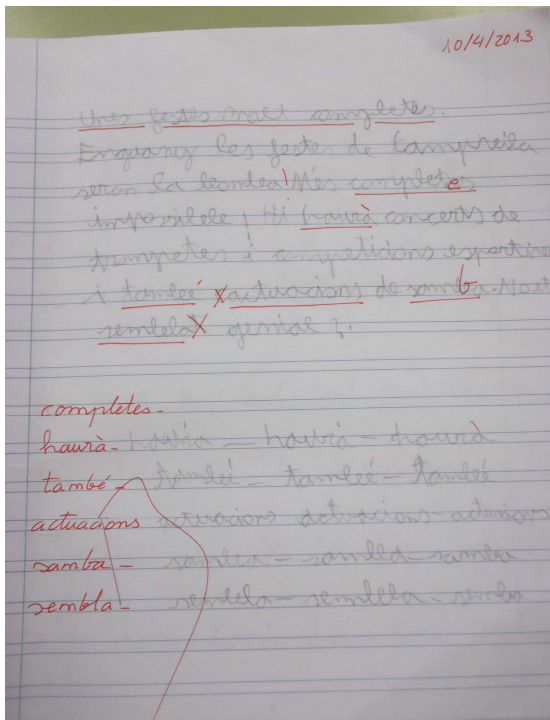 10/4/2013
Unes festes molt completes.
Enguany les festes de Campreila
seran la leomlea! Més completes
impossilele! Hi haurà concerts de
trumpetes i competicions esportive
i tamleé X actuacions de samba. No et
semlela X genial?.
completes-
haurà- hauria - haurà - haurà
també - tamleé - tamleé - tamleé
actuacions actuacions actuacions - actuacions
samba - samlea - samlea - samlea
sembla - semlela - semlela - semlea